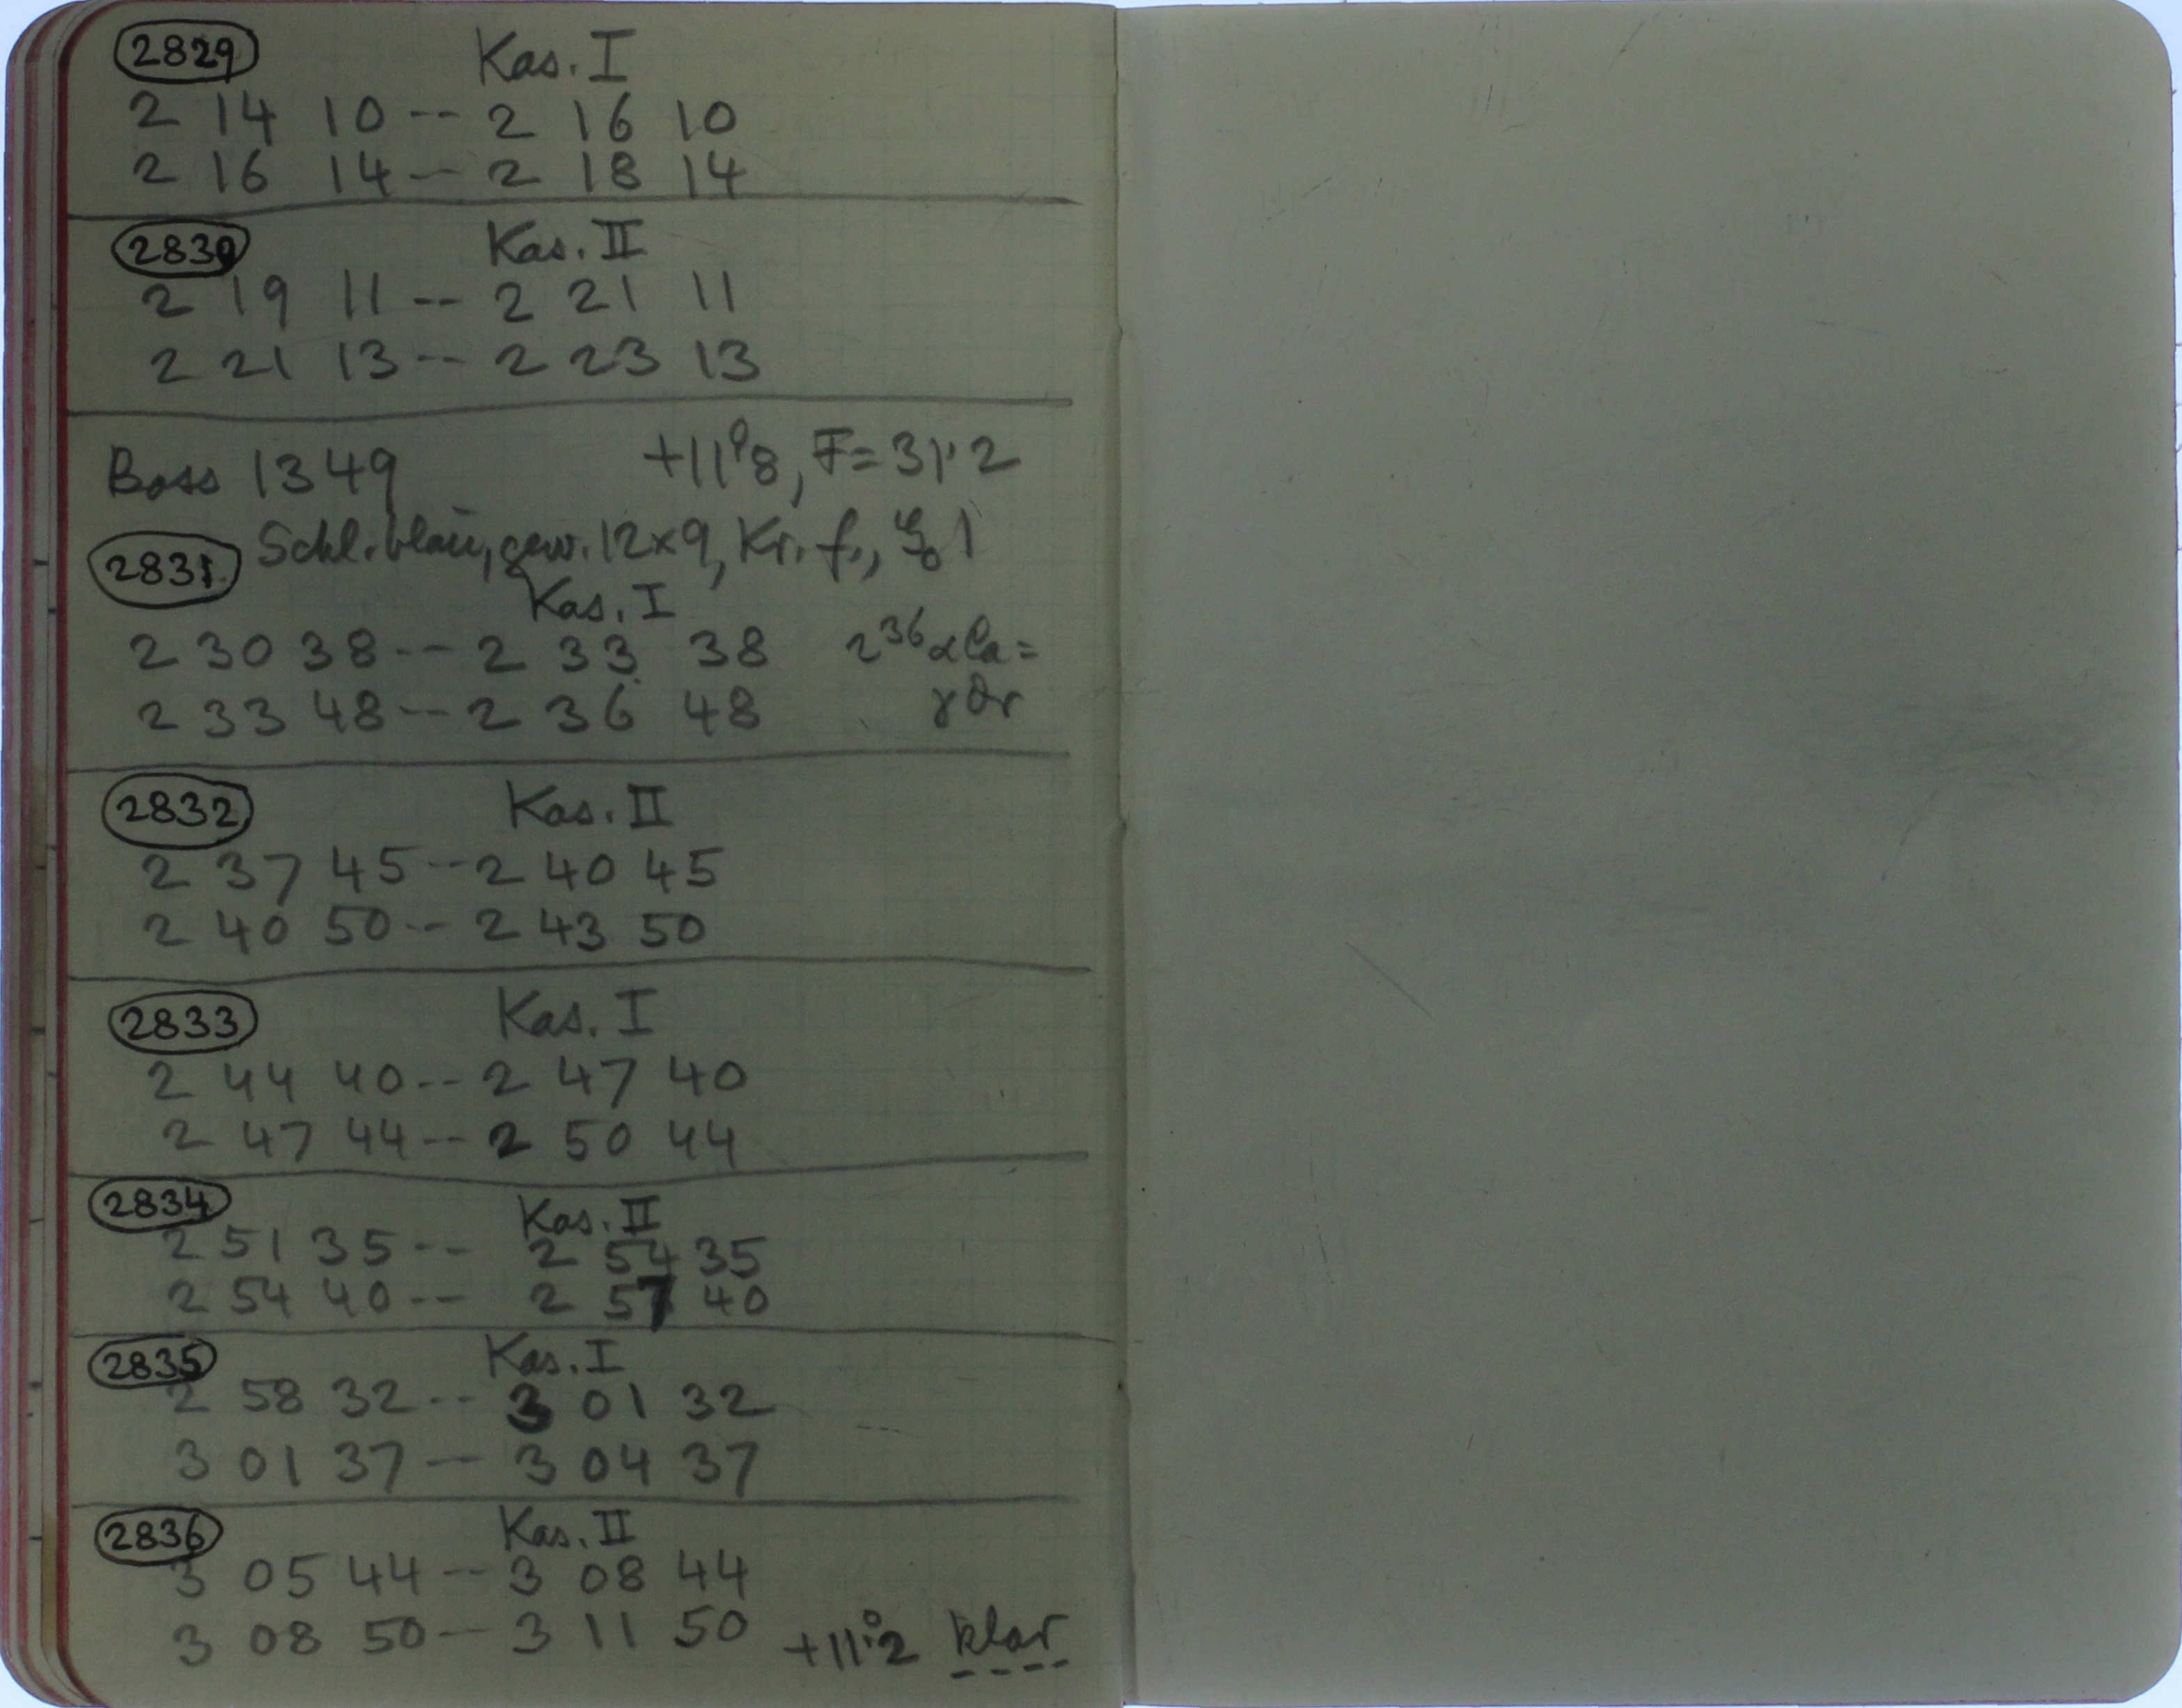 2829 Kas. I
2 14 10 -- 2 16 10
2 16 14 -- 2 18 14
2830 Kas. II
2 19 11 -- 2 21 11
2 21 13 -- 2 23 13
Boss 1349 +11°8, F=31.2
2831 Schl. blau, gew. 12×9, Kr. f.,
Kas. I
2 30 38 -- 2 33 38
2 33 48 -- 2 36 48
2832 Kas. II
2 37 45 -- 2 40 45
2 40 50 -- 2 43 50
2833 Kas. I
2 44 40 -- 2 47 40
2 47 44 -- 2 50 44
2834 Kas. II
2 51 35 -- 2 54 35
2 54 40 -- 2 57 40
2835 Kas. I
2 58 32 -- 3 01 32
3 01 37 -- 3 04 37
2836 Kas. II
3 05 44 -- 3 08 44
3 08 50 -- 3 11 50 +11°.2 klar